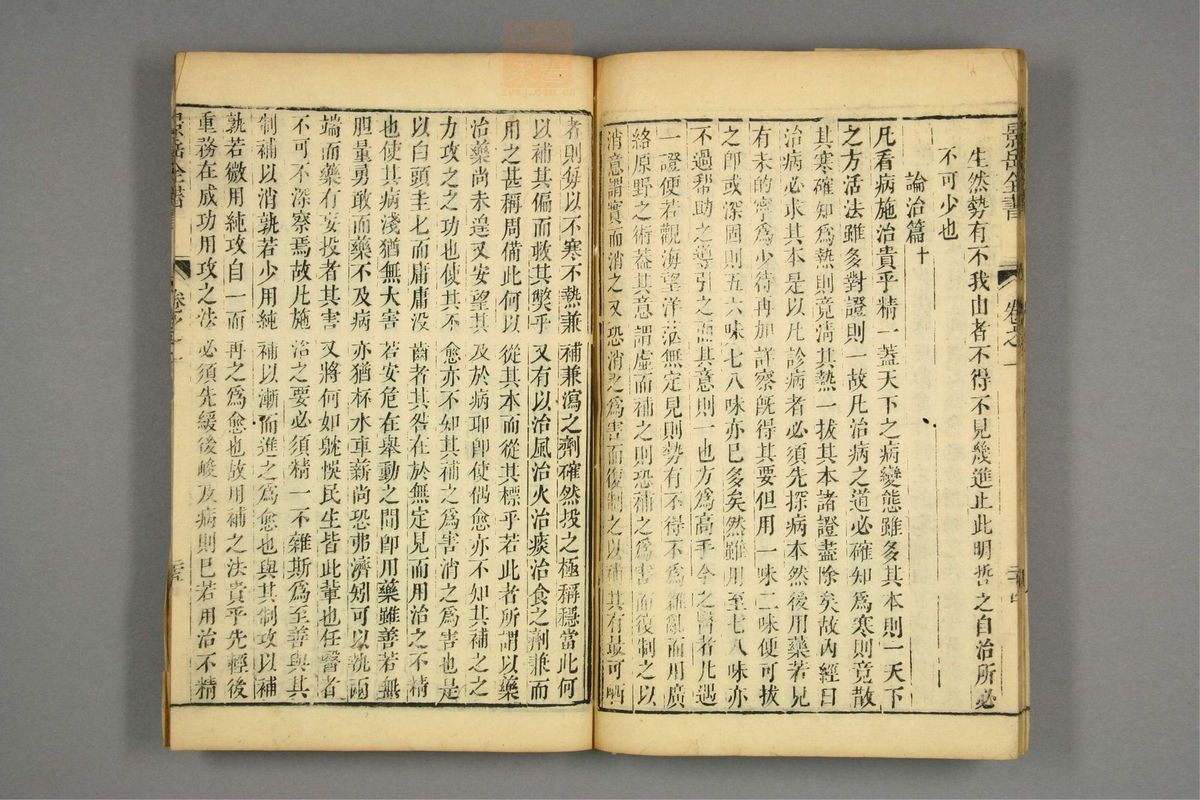 景岳全書
卷之一
生然勢有不我由者不得不見幾進止此明哲之自治所必
不可少也
論治篇十
凡看病施治貴乎精一蓋天下之病變態雖多其本則一天下
之方活法雖多對證則一故凡治病之道必確知為寒則竟散
其寒確知為熱則竟淸其熱一拔其本諸證盡除矣故內經曰
治病必求其本是以凡診病者必須先探病本然後用藥若見
有未的寧為少待再加詳察旣得其要但用一味二味便可拔
之卽或深固則五六味七八味亦已多矣然雖用至七八味亦
不過幫助之導引之而其意則一也方為高手今之醫者凡遇
一證便若觀海望洋茫無定見則勢有不得不為雜亂而用廣
絡原野之術葢其意謂虛而補之則恐補之為害而復制之以
消意謂實而消之又恐消之為害而復制之以補其有最可哂
者則每以不寒不熱兼補兼瀉之劑確然投之極稱穩當此何
以補其偏而救其獘乎又有以治風治火治痰治食之劑兼而
用之甚稱周備此何以從其本而從其標乎若此者所謂以藥
治藥尚未遑又安望其及於病耶卽使偶愈亦不知其補之之
力攻之之功也使其不愈亦不知其補之為害消之為害也是
以白頭圭匕而庸庸沒齒者其咎在於無定見而用治之不精
也使其病淺猶無大害若安危在舉動之間卽用藥雖善若無
胆量勇敢而藥不及病亦猶杯水車薪尚恐弗濟矧可以執兩
端而藥有妄投者其害又將何如躭悞民生皆此輩也任醫者
不可不深察焉故凡施治之要必須精一不雜斯為至善與其
制補以消孰若少用純補以漸而進之為愈也與其制攻以補
孰若微用純攻自一而再之為愈也故用補之法貴乎先輕後
重務在成功用攻之法必須先緩後峻及病則已若用治不精
景岳全書
卷之一